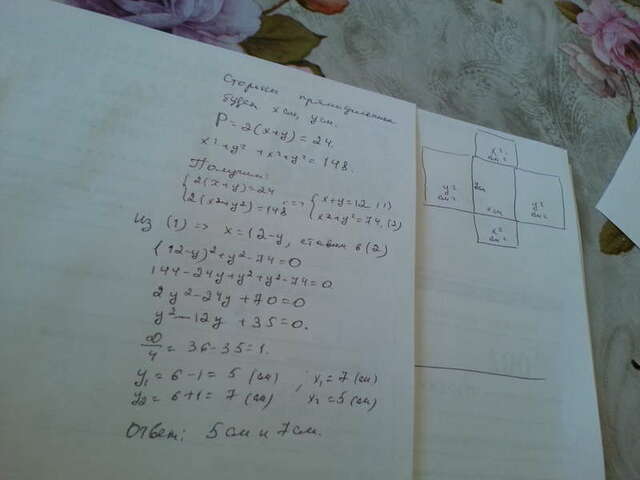 Стороны прямоугольника
будет x см, y см.
P = 2(x+y) = 24.
x²+y² + x²+y² = 148.
Получим:
{2(x+y)=24
{2(x²+y²)=148 <=> {x+y=12 (1)
{x²+y²=74, (2)
Из (1) => x=12-y, ставим в (2)
(12-y)²+y²-74=0
144-24y+y²+y²-74=0
2y²-24y+70=0
y²-12y+35=0.
D/4 = 36-35=1.
y₁ = 6-1 = 5 (см) ; x₁=7 (см)
y₂ = 6+1 = 7 (см) x₂=5 (см)
Ответ: 5 см и 7 см.
x²
y²
y²
x см
x²